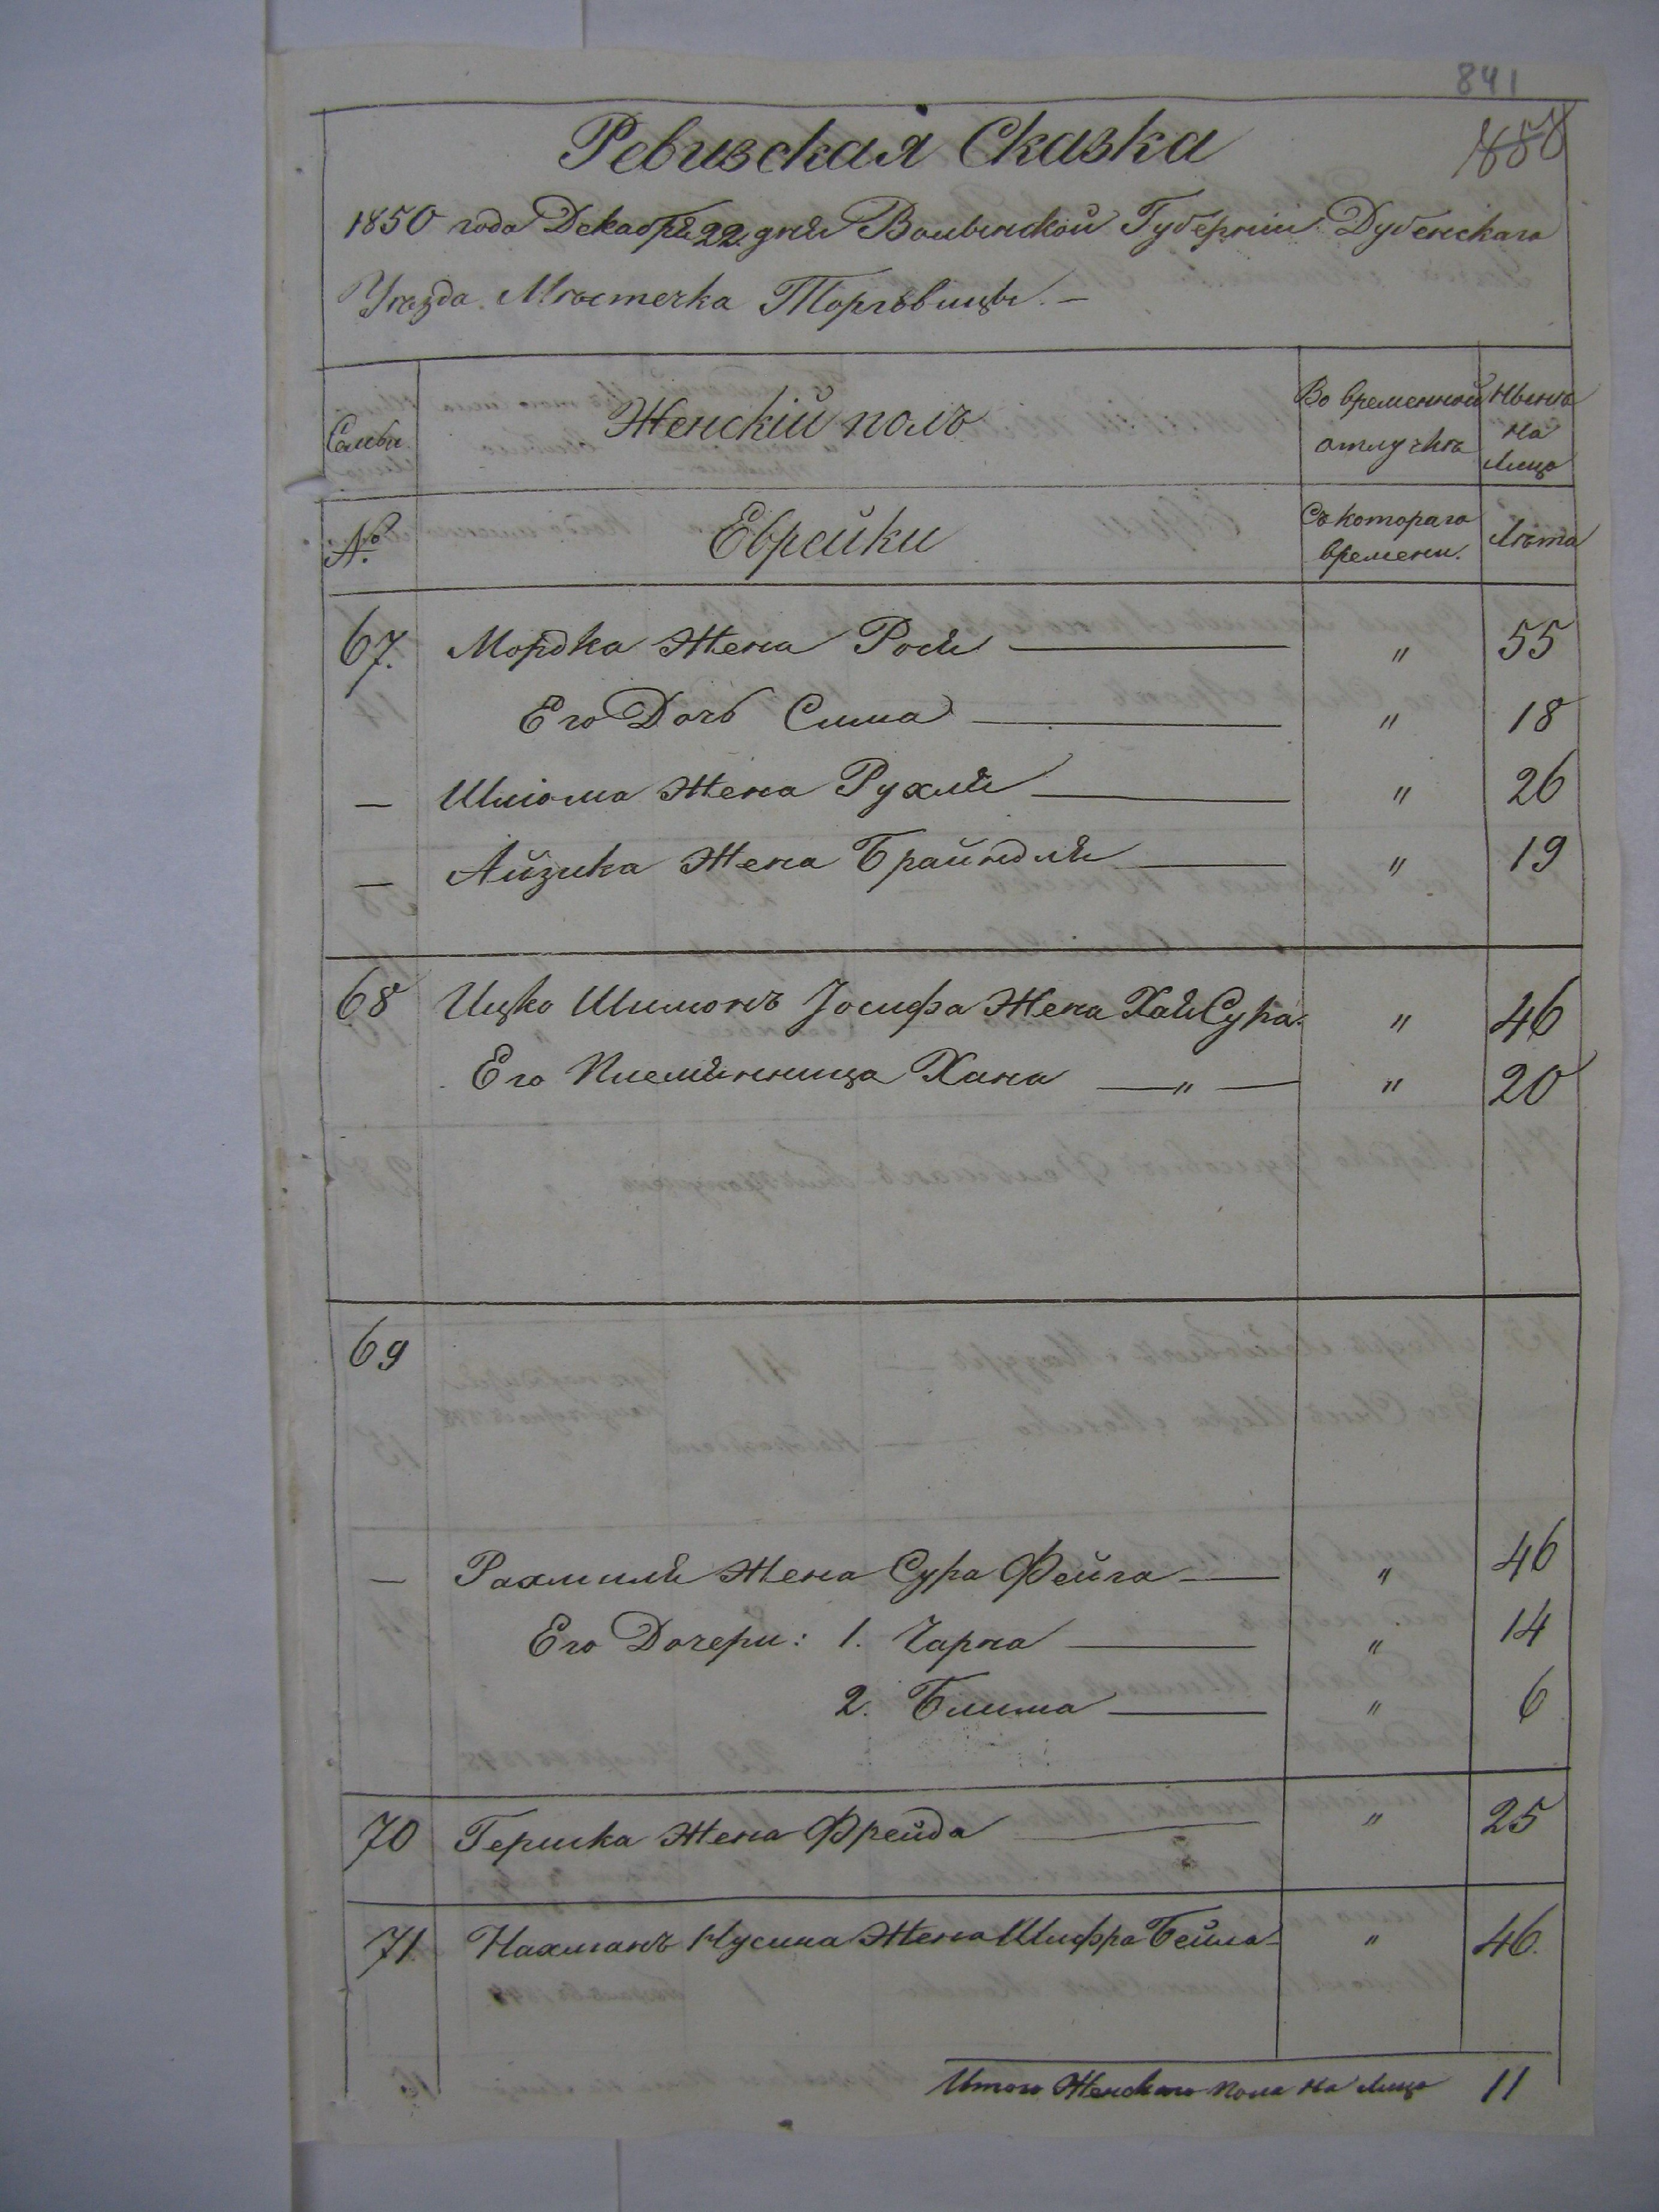 841
858
Ревизская Сказка
1850 года Декабря 22 дня Волынской Губерніи Дубенскаго
Уѣзда Мѣстечка Торговицы. —
Семьи
Женскій полъ
Во временной отлучкѣ
Нынѣ на лицо
№
Еврейки
Съ котораго времени.
Лѣта
67. Мордка Жена Рося — " 55
Его Дочь Сима — " 18
— Шліома Жена Рухля — " 26
— Айзика Жена Брайндля — " 19
68 Ицко Шимонъ Іосифа Жена Хая Сура. " 46
Его Племянница Хана — " — " 20
69
— Рахмиля Жена Сура Фейга — " 46
Его Дочери: 1. Чарна — " 14
2. Блима — " 6
70 Гершка Жена Фрейда — " 25
71 Нахманъ Нусина Жена Шифра Бейла — " 46.
Итого Женскаго пола на лицо 11